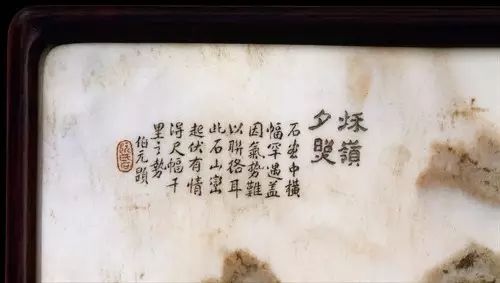 秌嶺
夕照
石畫中橫
幅罕遇盖
因氣勢難
以聯絡耳
此石山巒
起伏有情
得尺幅千
里之勢
伯元題